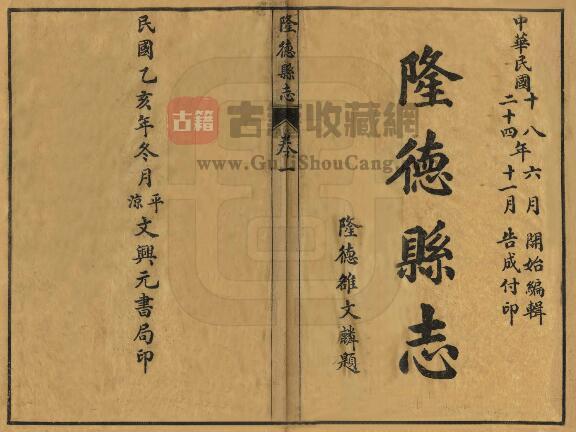 中華民國十八年六月開始編輯
二十四十一月告成付印
隆德縣志
隆德雒文麟題
隆德縣志
卷一
民國乙亥年冬月平涼文興元書局印
古籍
古籍收藏網
www.GuJiShouCang